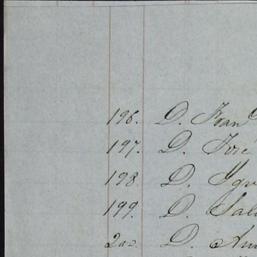 196. D. Juan
197. D. José
198. D. Ygn
199. D. Sal
200. D. An